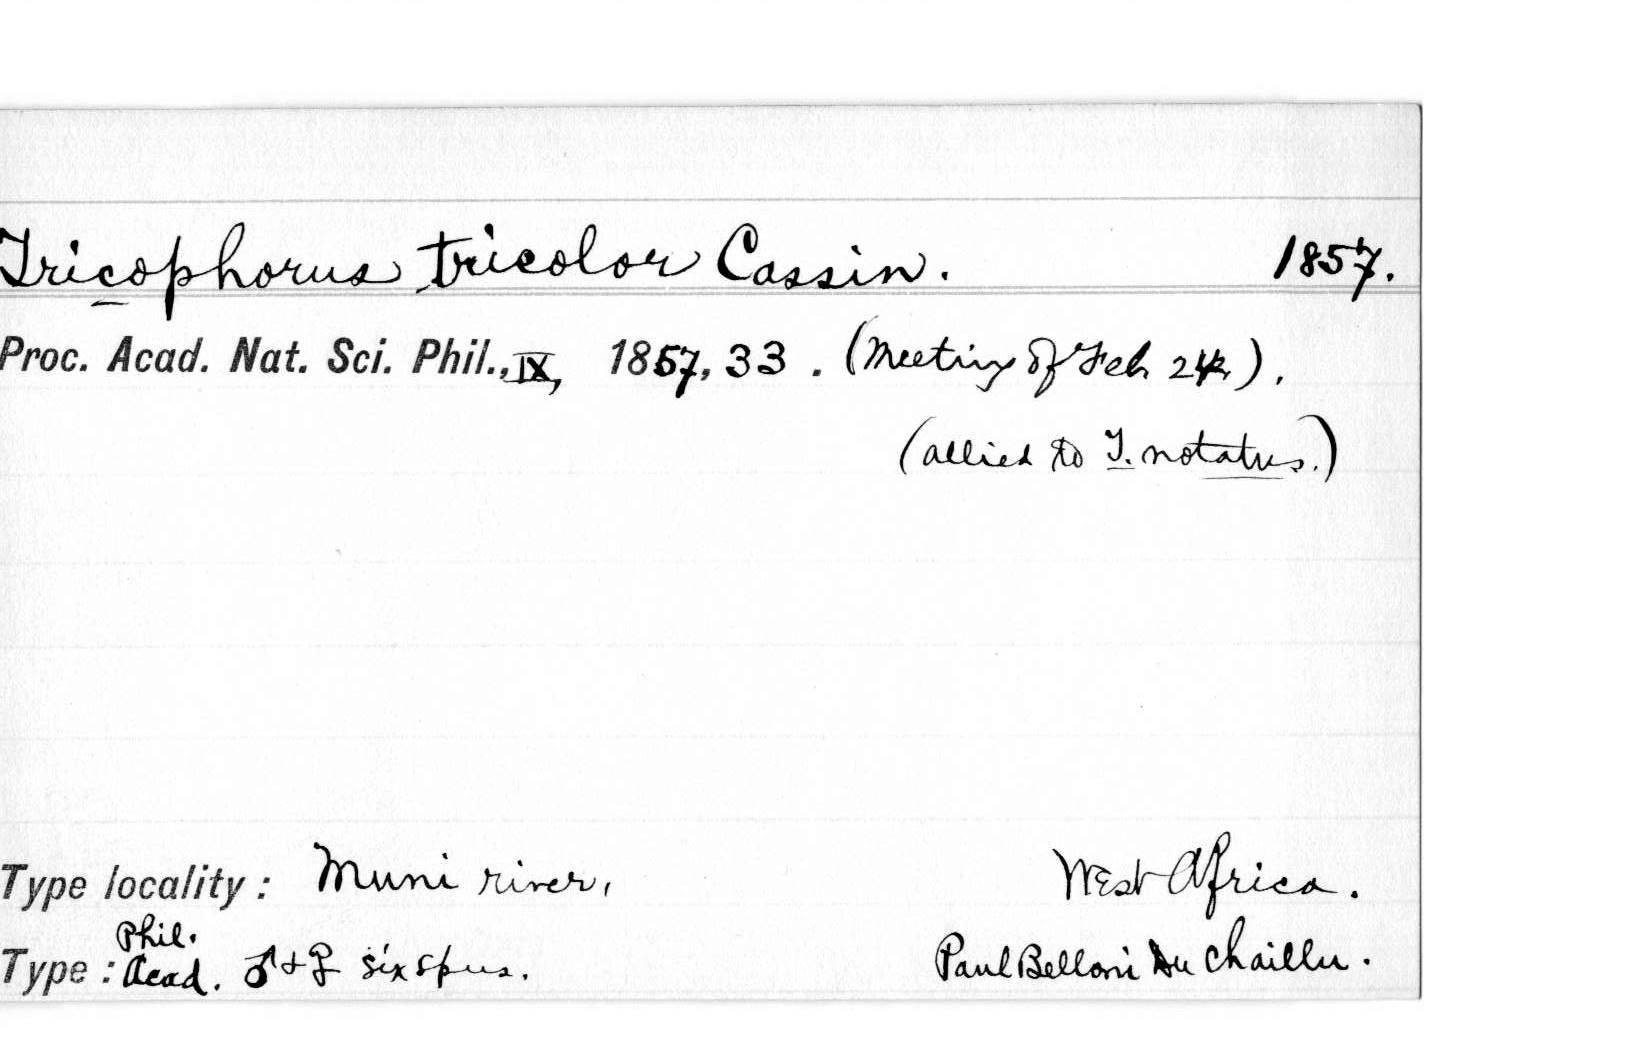 Tricophorus tricolor Cassin. 1857.
Proc. Acad. Nat. Sci. Phil., IX, 1857, 33. (Meeting of Feb. 24.).
(allied to T. notatus.)
Type locality: Muni river, West Africa.
Phil.
Type: Acad. ♂ + ♀ six spms. Paul Belloni Du Chaillu.